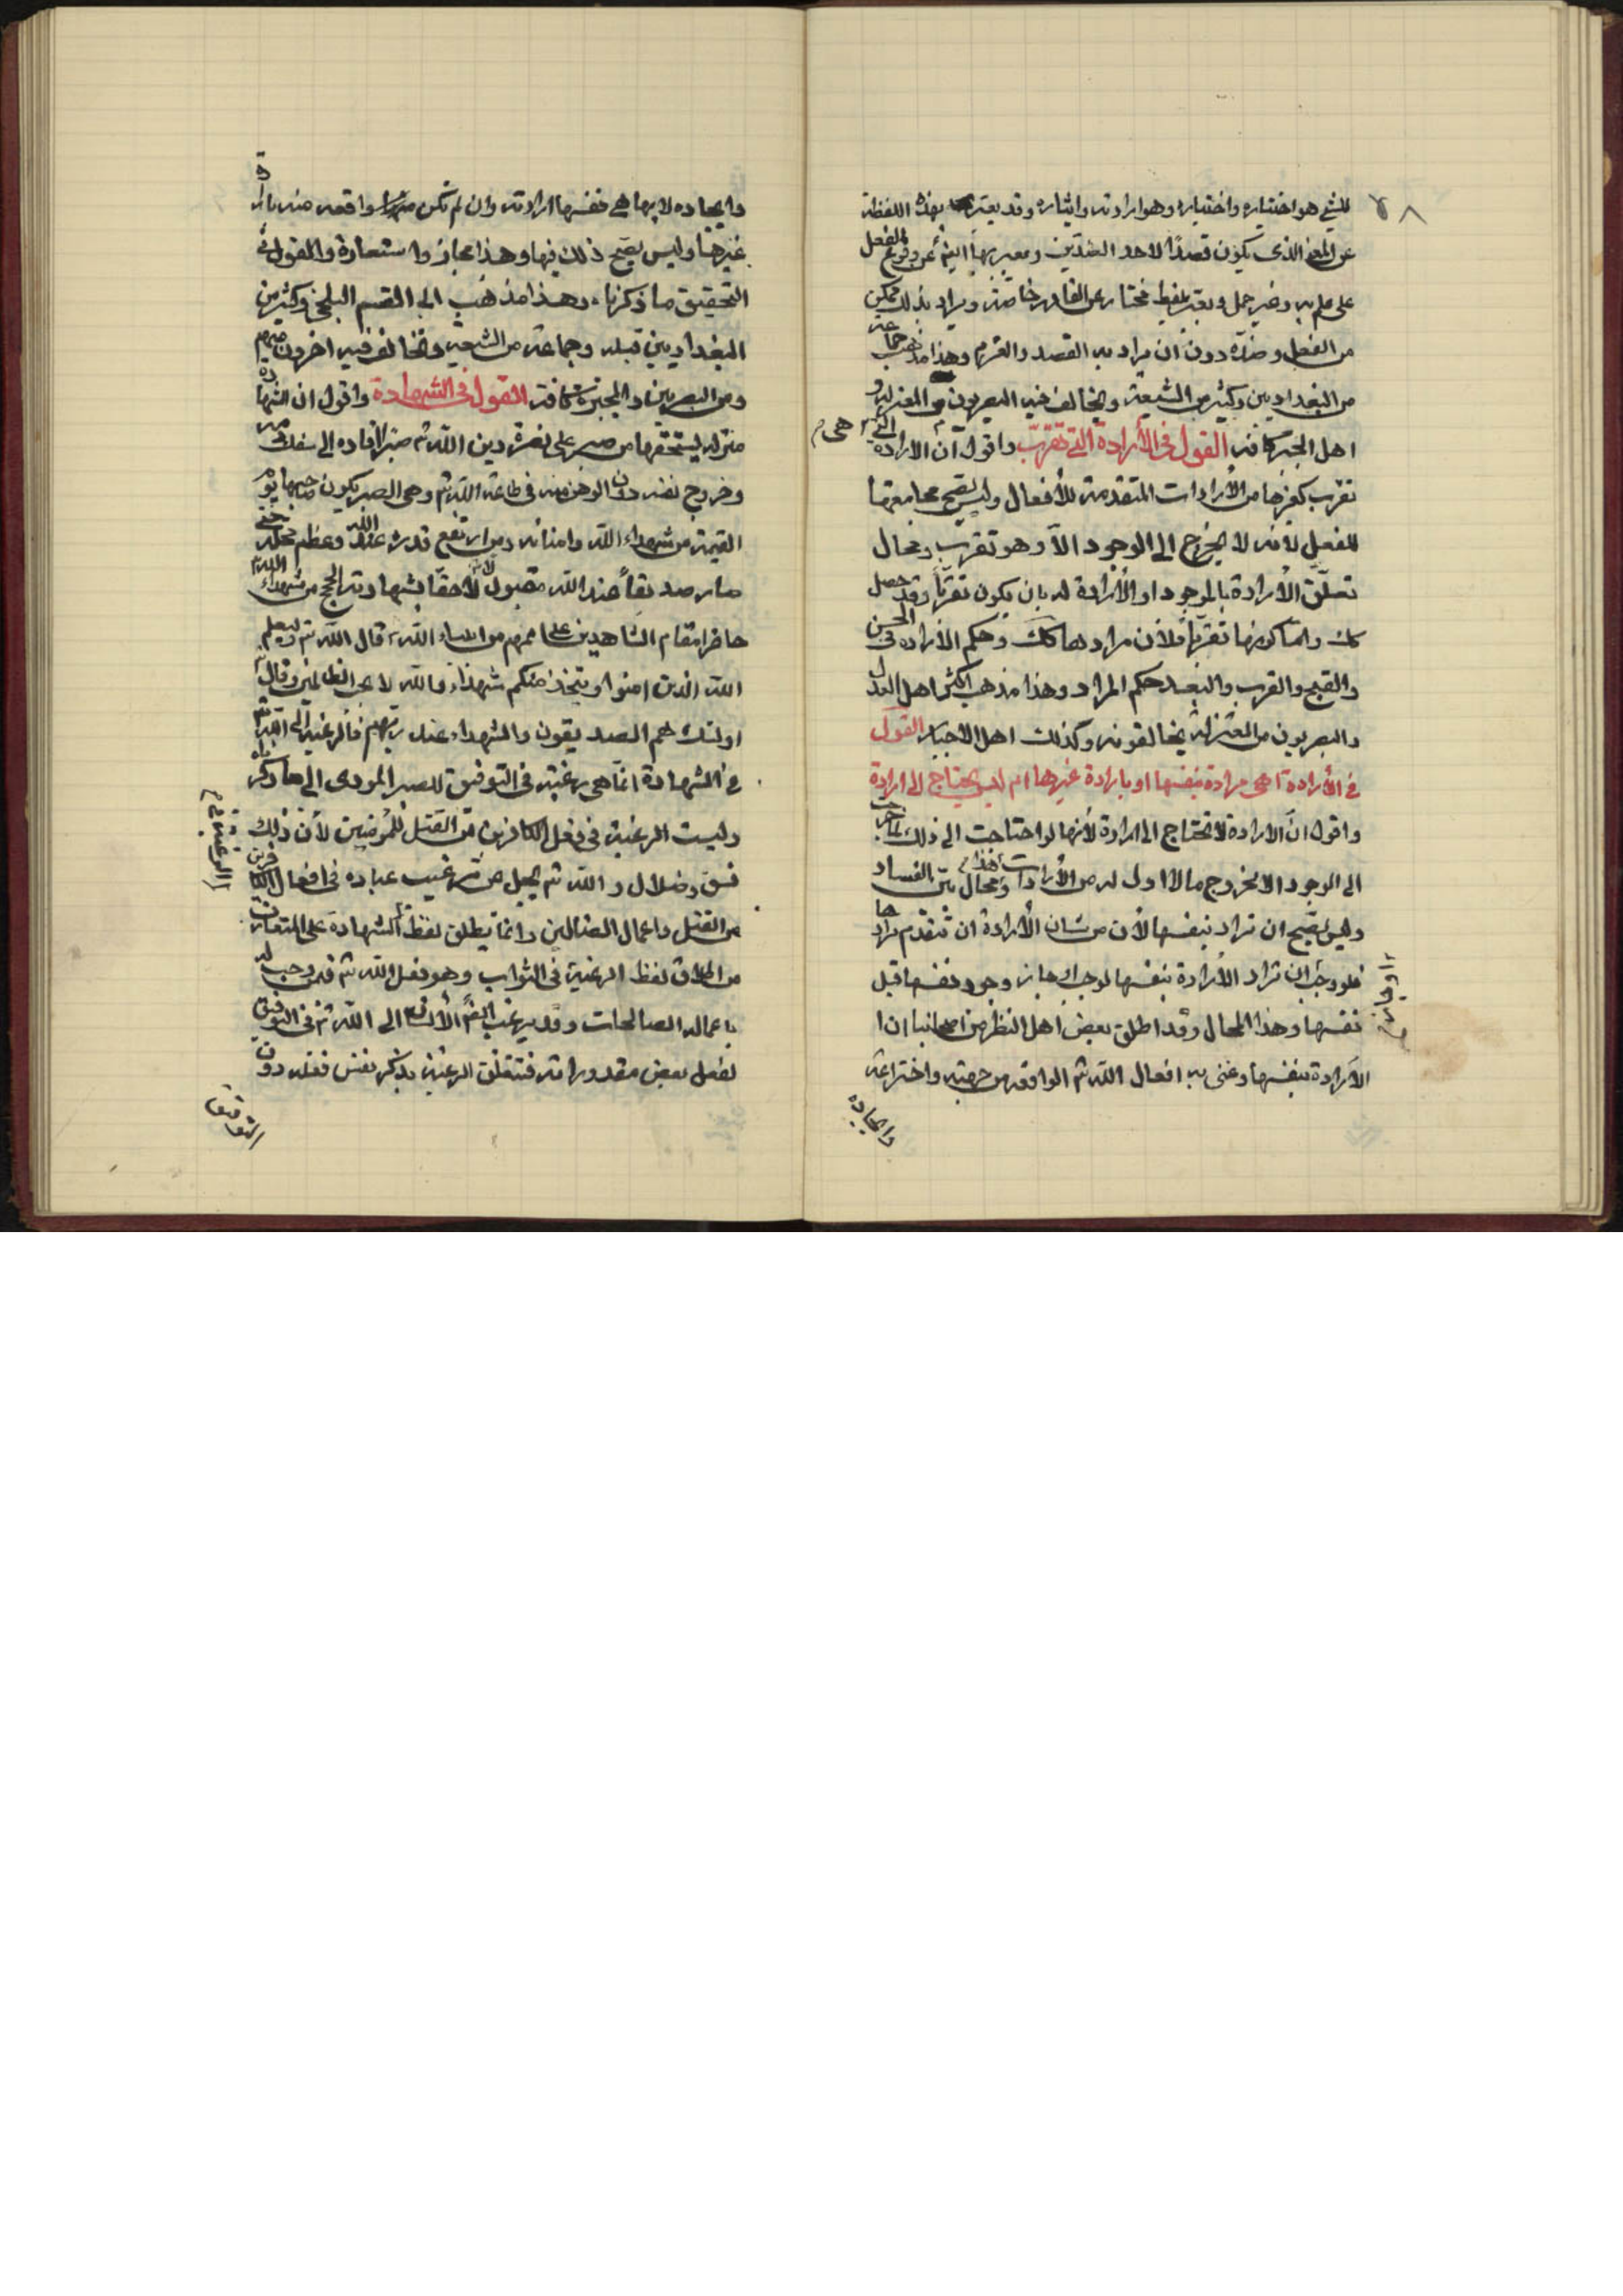 ٧٨
للشئ هو اختياره واختياره وهو ارادته وايثاره وقد يعبر بهذه اللفظة
عن المعنى الذى يكون قصدًا لاحد الضدين ويعبر بها ايضًا عن وقوع الفعل
على علم به وغير حمل ويعبر بلفظ مختار عن القادر خاصة ويراد بذلك متمكن
من الفعل وضده دون ان يراد به القصد والعزم وهذا مذهب جماعة
من البغداديين وكثير من الشيعة ويخالف فيه البصريون من المعتزلة و
اهل الجبر كافة القول فى الأرادة التى تقرّب واقول ان الارادة التى هى م
تقرب كغيرها من الأرادات المتقدمة للأفعال وليس يصح مجامعتها
للفعل لأنه لا يخرج الى الوجود الّا وهو تقرب ومحال
تعلّق الأرادة بالموجود او الأرادة له بان يكون تقربًا وقد حصل
كك واما كونها تقربًا فلأن مرادها كك وحكم الأرادة فى الحسن
والقبح والقرب والبعد حكم المراد وهذا مذهب اكثر اهل العدل
والبصريون من المعتزلة يخالفونه وكذلك اهل الاجبار القول
فى الأرادة اهى مرادة بنفسها او بارادة غيرها ام ليس يحتاج الى ارادة
واقول انّ الارادة لا تحتاج الى ارادة لأنها لو احتاجت الى ذلك لما خرجت
الى الوجود الا بخروج ما لا اول له من الأرادات وهذا محال بيّن الفساد
وليس يصح ان تراد بنفسها لأن من شان الأرادة ان تتقدم مرادها
فلو وجب ان تراد الأرادة بنفسها لوجب او جاز وجود نفسها قبل
او جاز م
نفسها وهذا المحال وقد اطلق بعض اهل النظر من اصحابنا ان ا
الأرادة بنفسها وعنى به افعال اللّه تم الواقعة من جهته واختراعه
وايجاده
وايجاده لا بها هى نفسها ارادته وان لم تكن واقعة منه بارادة
غيرها وليس يصح ذلك فيها وهذا مجاز واستعارة والقول فى
التحقيق ما ذكرناه وهذا مذهب ابى القسم البلخى وكثير من
البغداديين قبله وجماعة من الشيعة ويخالف فيه اخرون منهم
ومن البصريين والمجبرة كافة القول فى الشهادة واقول ان الشهادة
منزلة يستحقها من صبر على نصرة دين اللّه تم صبرًا قاده الى سفك دمه
وخروج نفسه دون الوهن منه فى طاعة اللّه تم وهى الصبر يكون صاحبها يوم
القيمة من شهداء اللّه وامنائه ومن ارتفع قدره عند اللّه وعظم محله حتى
صار صديقاً عند اللّه مقبول لاحقًا بشهادته الحجج من شهداء اللّه
حاضرا مقام الشاهدين على اممهم من انبياء اللّه قال اللّه تم وليعلم
اللّه الذين امنوا ويتخذ منكم شهداء واللّه لا يحب الظالمين وقال
اولئك هم الصديقون والشهداء عند ربهم فالرغبة الى اللّه تم
فى الشهادة انّما هى رغبة فى التوفيق للصبر المودى الى ما ذكرناه
وليست الرغبة فى فعل الكافرين من القتل للمؤمنين لأن ذلك
الرغبة م
فسق وضلال واللّه تم يجل عن ترغيب عباده فى افعال الكافرين
من القتل واعمال الضالين وانما يطلق لفظ الشهادة على المتعارف
من اطلاق لفظ الرغبة فى الثواب وهو فعل اللّه تم فيمن وجب له
باعماله الصالحات وقد يرغب ايضًا الأنسان الى اللّه تم فى التوفيق
لفعل بعض مقدوراته فتتعلق الرغبة بذكر نفس فعله دون
التوفيق